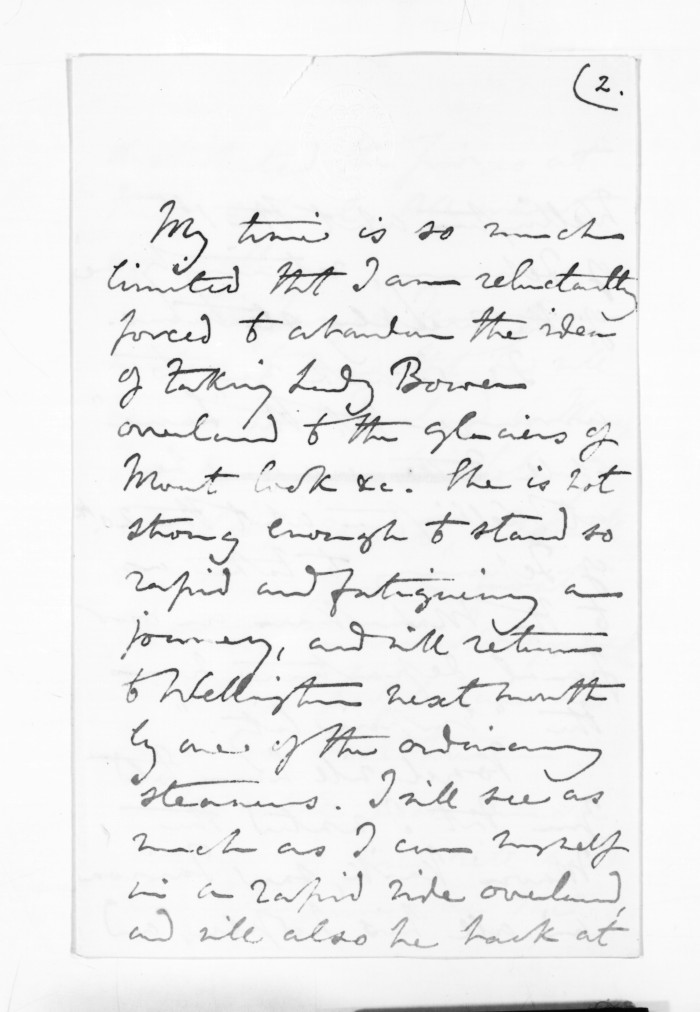 (2.
My time is so much
limited that I am reluctantly
forced to abandon the idea
of taking Lady Bowen
overland to the glaciers of
Mount Cook &c. She is not
strong enough to stand so
rapid and fatiguing a
journey, and will return
to Wellington next month
by one of the ordinary
steamers. I will see as
much as I can myself
in a rapid ride overland,
and will also be back at